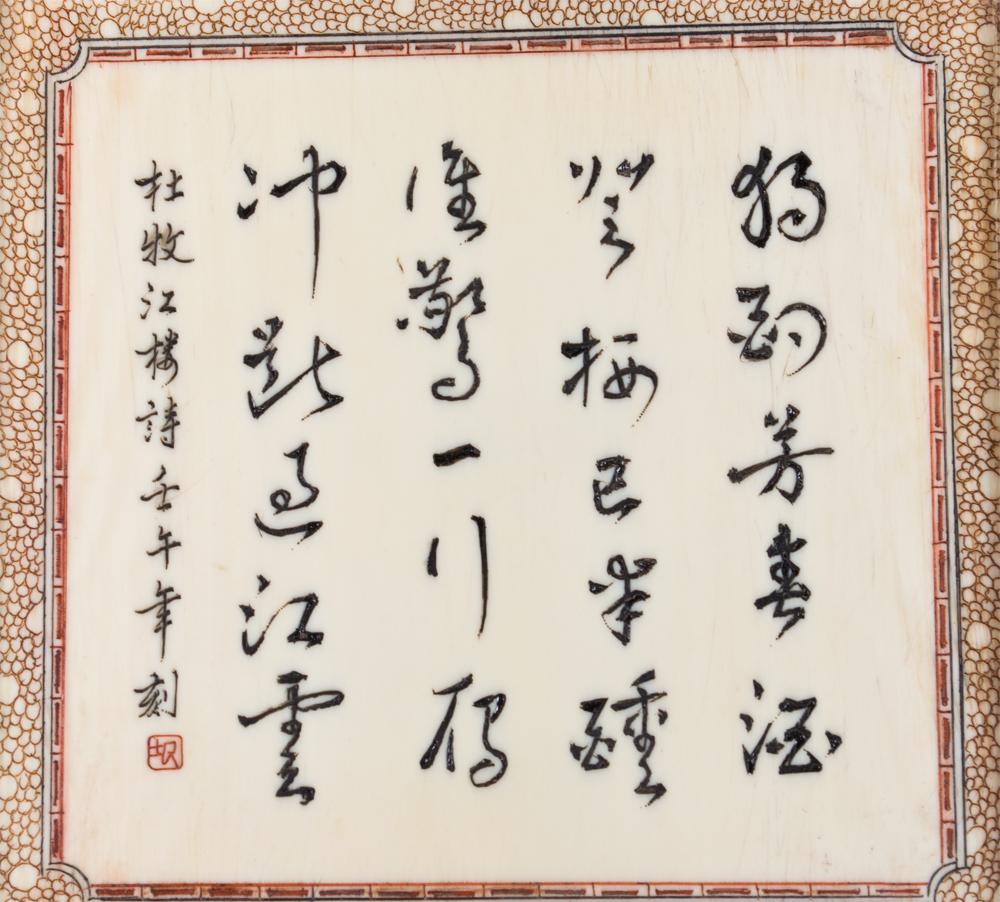 獨酌芳春酒
登楼已半醺
誰驚一行鴈
冲斷過江雲
杜牧江楼詩壬午年刻